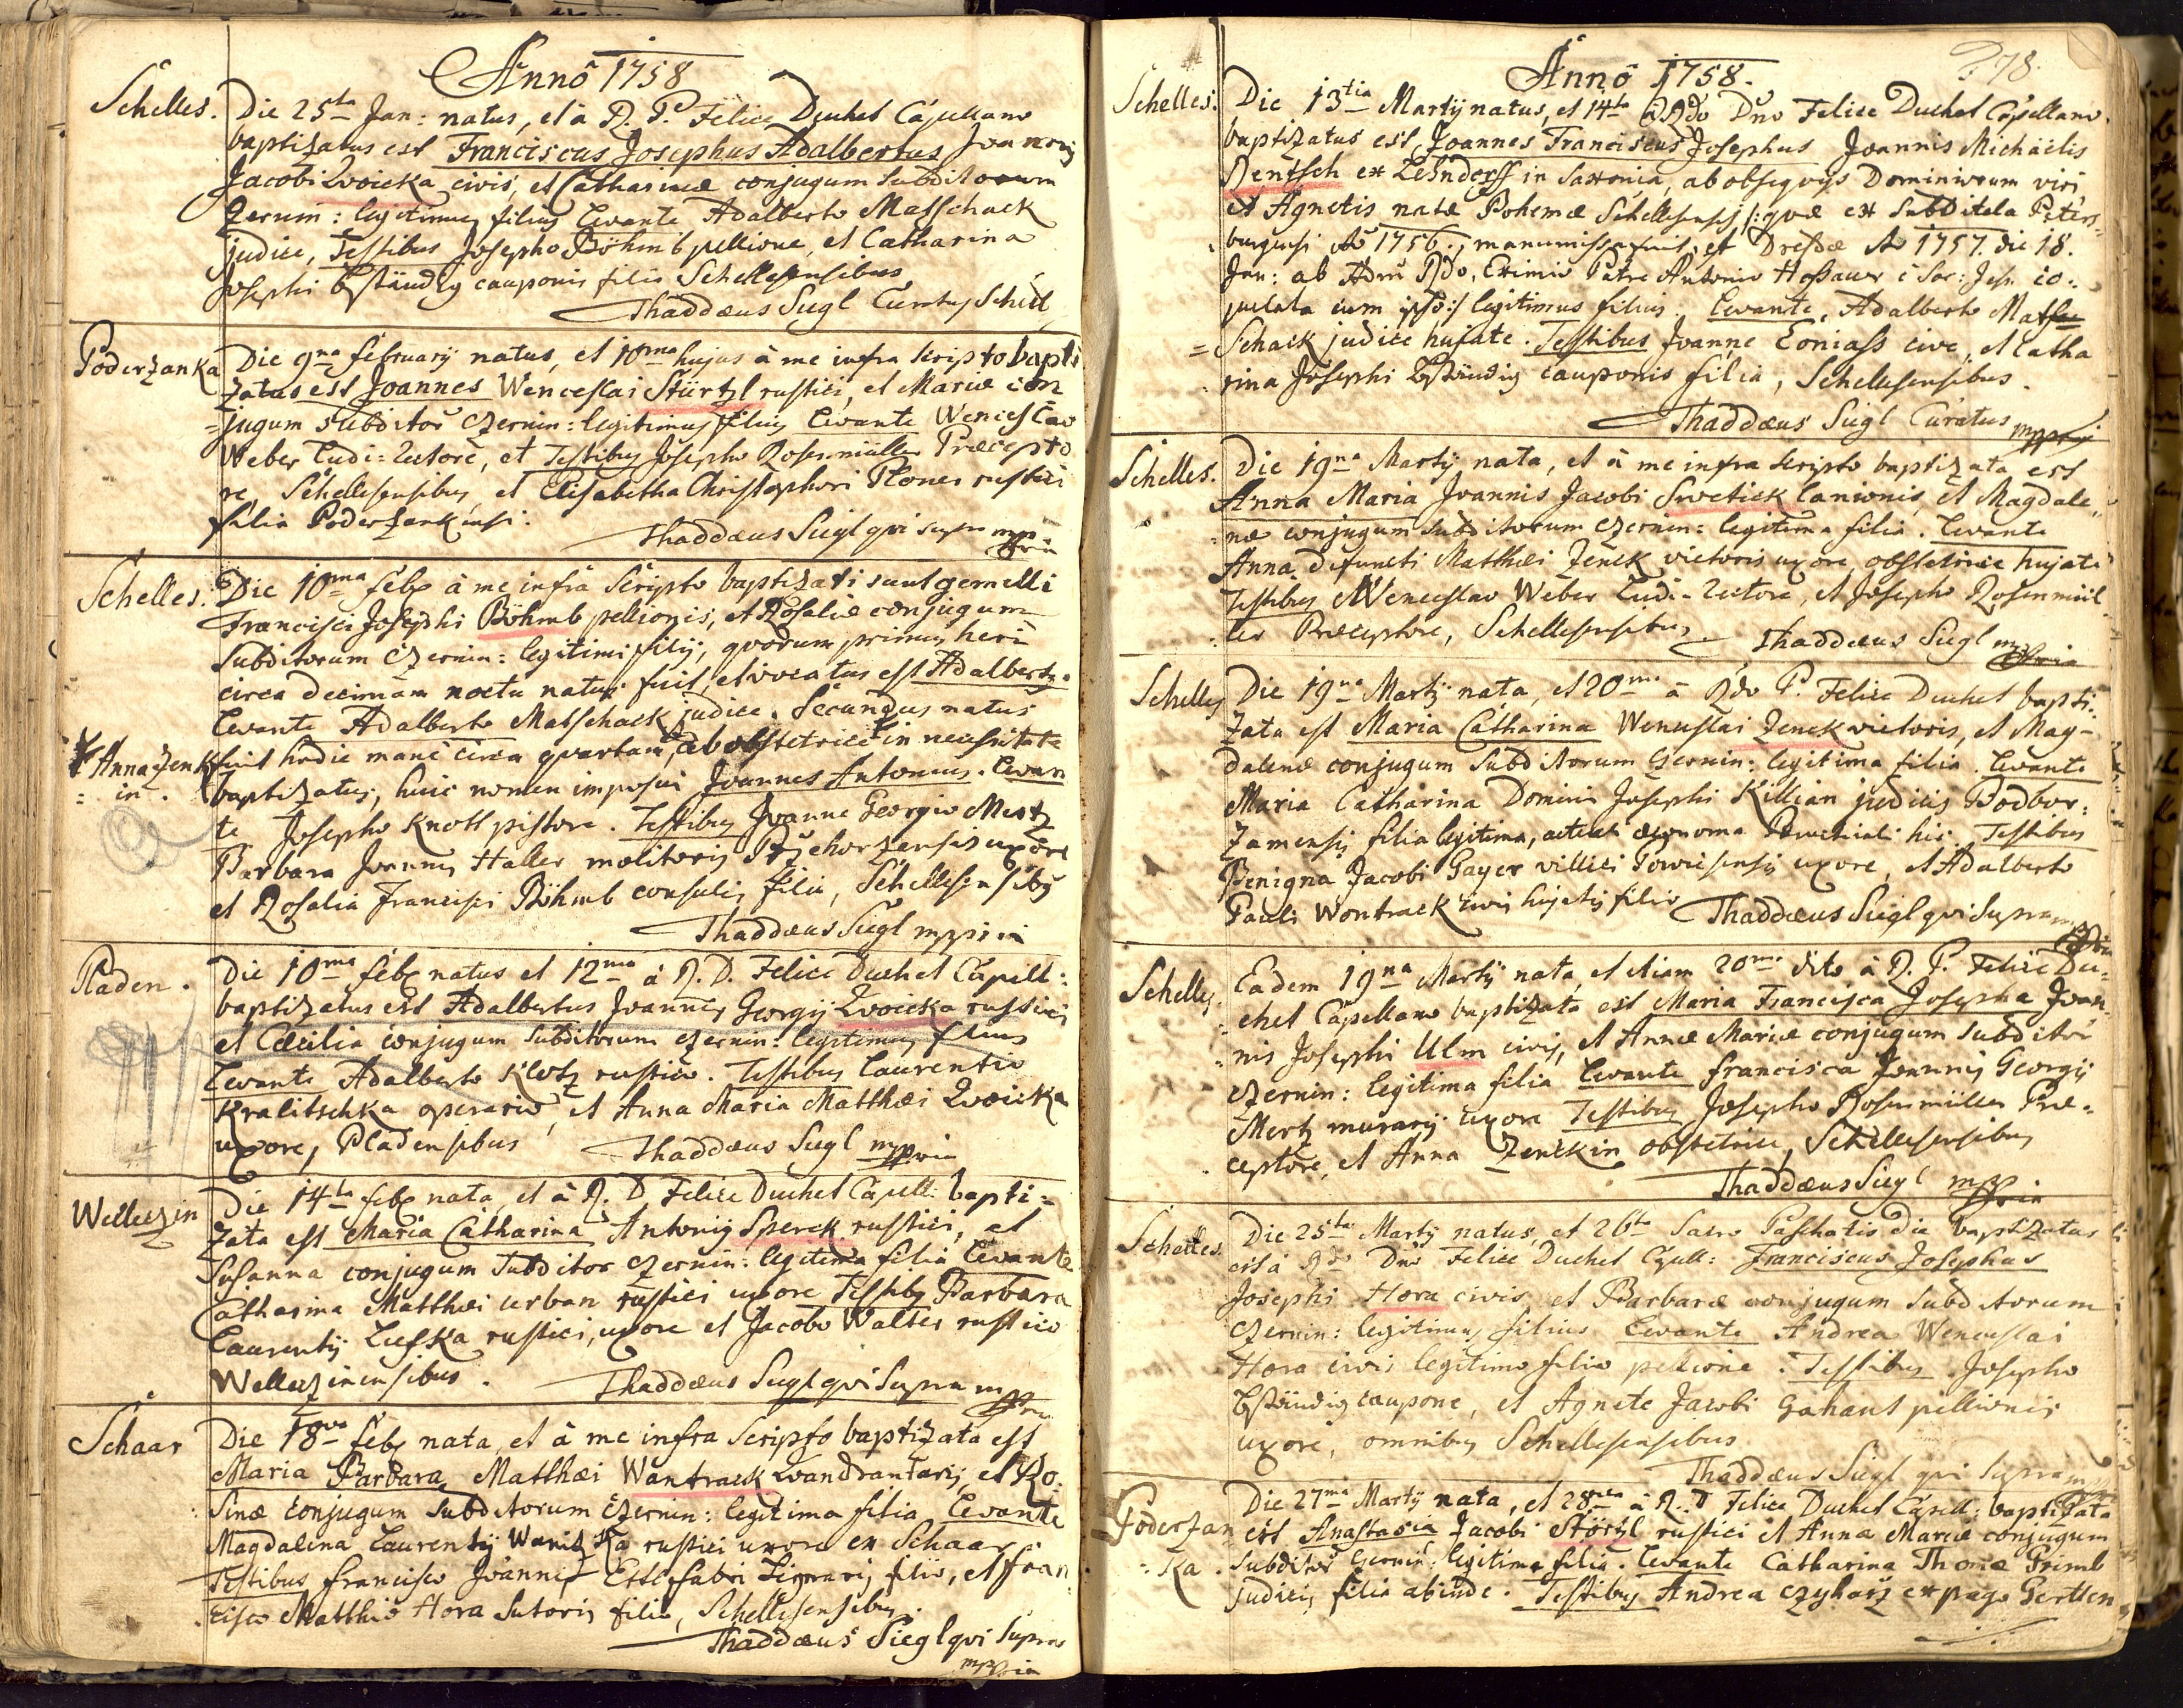 Annô 1758
Schelles. Die 25ta Jan: natus, et à R. P. Felice Duchet Capellano
baptizatus est Franciscus Josephus Adalbertus Joannis
Jacobi Zwoicka civis, et Catharinæ conjugum subditorum
Zernin: legitimus filius Levante Adalberto Matschack
judice, Testibus Josepho Böhmb pellione, et Catharina
Josephi Bständig cauponis filia Schellesensibus
Thaddæus Siegl Curatus Schell
Poderzanka Die 9na February natus, et 10ma hujus à me infra scripto bapti
zatus est Joannes Wenceslai Stürtzl rustici, et Mariæ con
=jugum subditor̃ Czernin: legitimus filius Levante Wenceslao
Weber Ludi=Rectore, et Testibus Josepho Rosenmüller Præcepto
re, Schellesensibus, et Elisabetha Christophori Plones rustici
filia Poderzankensi.
Thaddæus Siegl qvi supra mppria
Schelles. Die 10ma feb: à me infrà scripto baptizati sunt gemelli
Francisci Josephi Böhmb pellionis, et Rosaliæ conjugum
subditorum Czernin: legitimi filij, qvorum primus heri
circa decimam noctu natus fuit, et vocatus est Adalbertus.
Levante Adalberto Matschack judice. Secundus natus
* Anna Zenk fuit hodie manè circa qvartam, ab obstetrice * in necessitate
= in. baptizatus, huic nomen imposui Joannes Antonius. Levan
te Josepho Knott pistore. Testibus Joanne Georgio Mertz
Barbara Joannis Haller molitoris uxore
et Rosalia Francisci Böhmb consulis filia, Schellesensibus
Thaddæus Siegl mppria
Pladen. Die 10ma feb: natus et 12ma à R. D. Felice Duchet Capell:
baptizatus est Adalbertus Joannes Georgij Zwoicka rustici
et Cæcilia conjugum subditorum Czernin: legitimus filius
Levante Adalberto Klotz rustico. Testibus Laurentio
Kralitschka operario, et Anna Maria Matthæi Zwoicka
uxore, Pladensibus Thaddæus Siegl mppria
Welleczin Die 14ta feb: nata, et à R. D Felice Duchet Capell: bapti=
zata est Maria Catharina Antonij Sperck rustici, et
Susanna conjugum subditor Czernin: legitima filia Levante
Catharina Matthæi Urban rustici uxore Testibus Barbara
Laurentij Liefka rustici, uxore et Jacobo Walter rustico
Welleczinensibus. Thaddæus Siegl qvi supra mppria
Schaar Die 18va feb: nata, et à me infra scripto baptizata est
Maria Barbara Matthæi Wantrack et Ro:
sinæ conjugum subditorum Czernin: legitima filia Levante
Magdalena Laurentij Wanitzka rustici uxore ex Schaar
Testibus Francisco Joannis Ettl fabri Lignarij filio, et fran
cisco Matthio Hora sutoris filio, Schellesensibus.
Thaddæus Siegl qvi supra
mppria
378.
Annô 1758.
Schelles. Die 13tia Martij natus, et 14ta à Rdo Dno Felice Duchet Capellano.
baptizatus est Joannes Franciscus Josephus Joannis Michaëlis
Rentsch ex Lehndorff in Saxonia, ab obseqvijs Dominiorum viri
et Agnetis natæ Bohemæ Schellesensis /: qvæ ex subditela Peters=
burgensi Aõ 1756. manumissa fuit, et Dresdæ Aõ 1757. die 18.
Jan: ab Adm̃ Rdo, Eximio Patre Antonio Hossauer è Soc: Jesu co=
pulata cum ipso :/ legitimus filius. Levante, Adalberto Mat
=schack judice hujate. Testibus Joanne Coniass cive, et Catha
rina Josephi Bständig cauponis filia, Schellesensibus.
Thaddæus Siegl Curatus mppria
Schelles. Die 19na Martij nata, et à me infra scripto baptizata est
Anna Maria Joannis Jacobi Swetick lanionis, et Magdale=
næ conjugum subditorum Czernin: legitima filia. Levante
Anna defuncti Matthæi Zenck vietoris uxore, obstetrice hujate
Testibus Wenceslao Weber Ludi=Rectore, et Josepho Rosenmül
ler Præceptore, Schellesensibus. Thaddæus Siegl mppria
Schelles Die 19na Martij nata, et 20ma à Rdo P. Felice Duchet bapti
zata est Maria Catharina Wenceslai Zenck vietoris, et Mag=
dalenæ conjugum subditorum Czernin: legitima filia. Levante
Maria Catharina Domini Josephi Killian judicis Podbor:
zamensis filia legitima, œconoma Parochiali hic. Testibus
Benigna Jacobi Gayer villici uxore, et Adalberto
Pauli Wontrack civis hujatis filio Thaddæus Siegl qvi supra mppria
Schelles. Eadem 19na Martij nata, et etiam 20ma dito à R. P. Felice Du=
chet Capellano baptizata est Maria Francisca Josepha Joan=
nis Josephi Ulm civis, et Annæ Mariæ conjugum subditor̃
Czernin: legitima filia Levante francisca Joannis Georgij
Mertz murarij uxore Testibus Josepho Rosenmüller Præ=
ceptore, et Anna Zenckin obstetrice, Schellesensibus
Thaddæus Siegl mppria
Schelles. Die 25ta Martij natus, et 26ta sacro Paschatis die baptizatus
est à Rdo Dno Felice Duchet Capell: Franciscus Josephus
Josephi Hora civis et Barbaræ conjugum subditorum
Czernin: legitimus filius Levante Andrea Wenceslai
Hora civis legitimo filio pellione. Testibus Josepho
Bständig caupone, et Agnete Jacobi Gahaut pellionis
uxore, omnibus Schellesensibus
Thaddæus Siegl qvi supra mppria
Poderzan Die 27ma Martij nata, et 28va à R. D Felice Duchet Capell: baptizata
= ka. est Anastasia Jacobi Störtzl rustici et Anna Mariæ conjugum
subditor̃ Czernin: legitima filia. Levante Catharina Thomæ Primb
judicis filia abinde. Testibus Andrea Czyharz ex pago Gertten